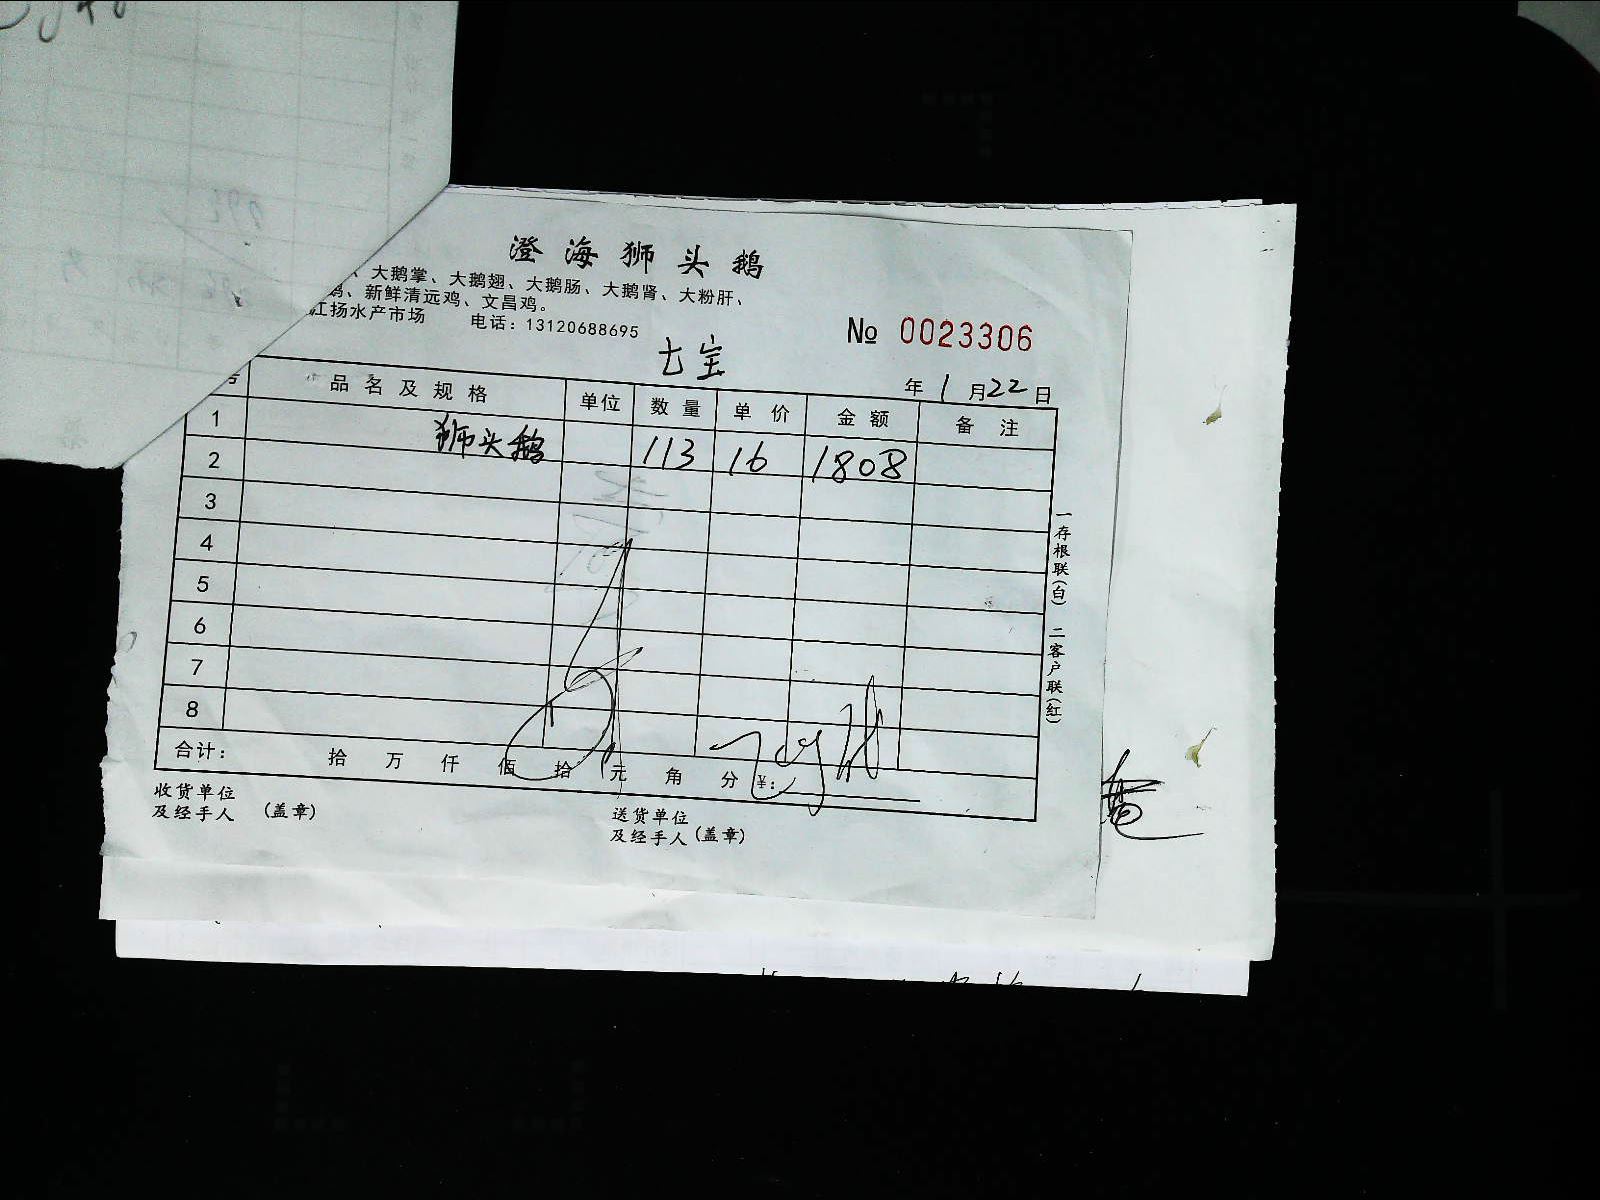 澄海狮头鹅
、大鹅掌、大鹅翅、大鹅肠、大鹅肾、大粉肝、
鹅、新鲜清远鸡、文昌鸡。
江扬水产市场 电话：13120688695
№ 0023306
七宝
年 1 月 22 日
号 品名及规格 单位 数量 单价 金额 备注
1 狮头鹅 113 16 1808
2
3
4
5
6
7
8
合计： 拾 万 仟 佰 拾 元 角 分 ¥：
收货单位 送货单位
及经手人 （盖章） 及经手人（盖章）
一存根联（白） 二客户联（红）